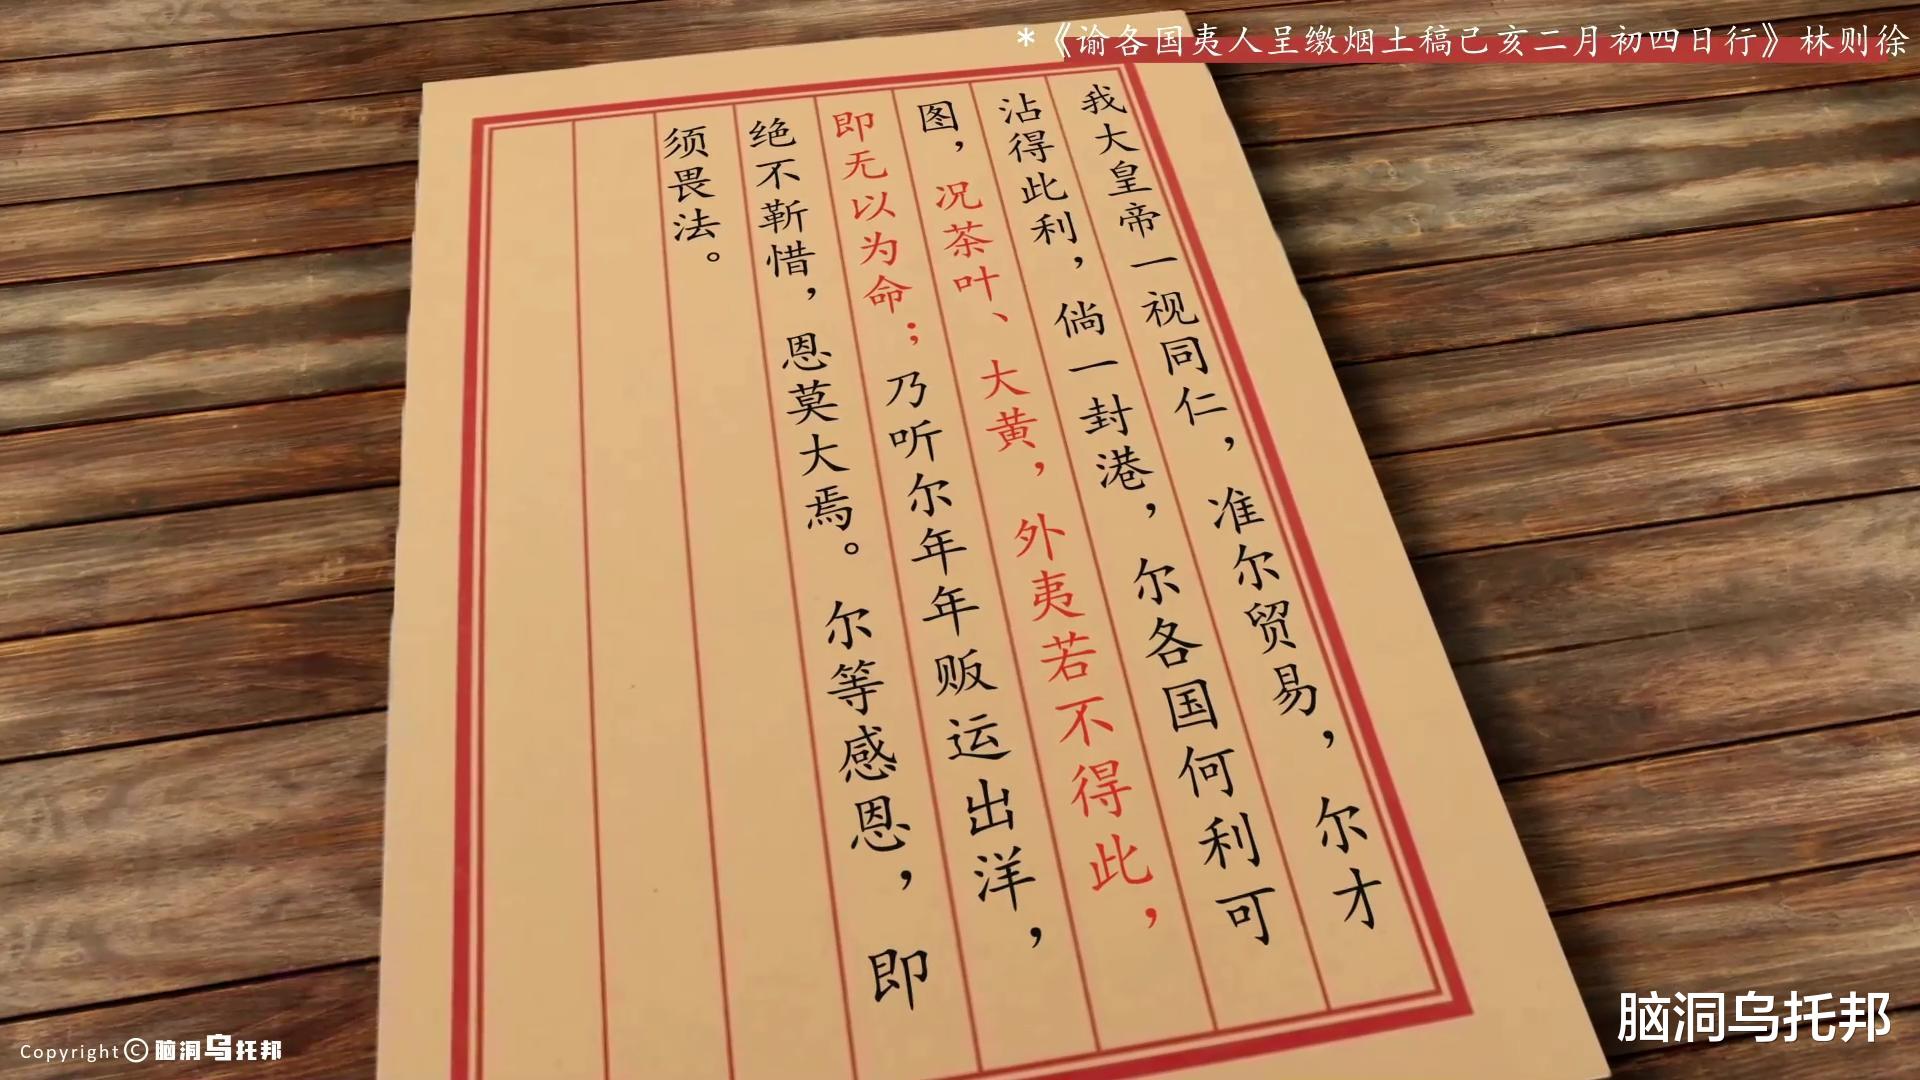 *《谕各国夷人呈缴烟土稿己亥二月初四日行》林则徐
我大皇帝一视同仁，准尔贸易，尔才
沾得此利，倘一封港，尔各国何利可
图，况茶叶、大黄，外夷若不得此，
即无以为命；乃听尔年年贩运出洋，
绝不靳惜，恩莫大焉。尔等感恩，即
须畏法。
脑洞乌托邦
Copyright © 脑洞乌托邦